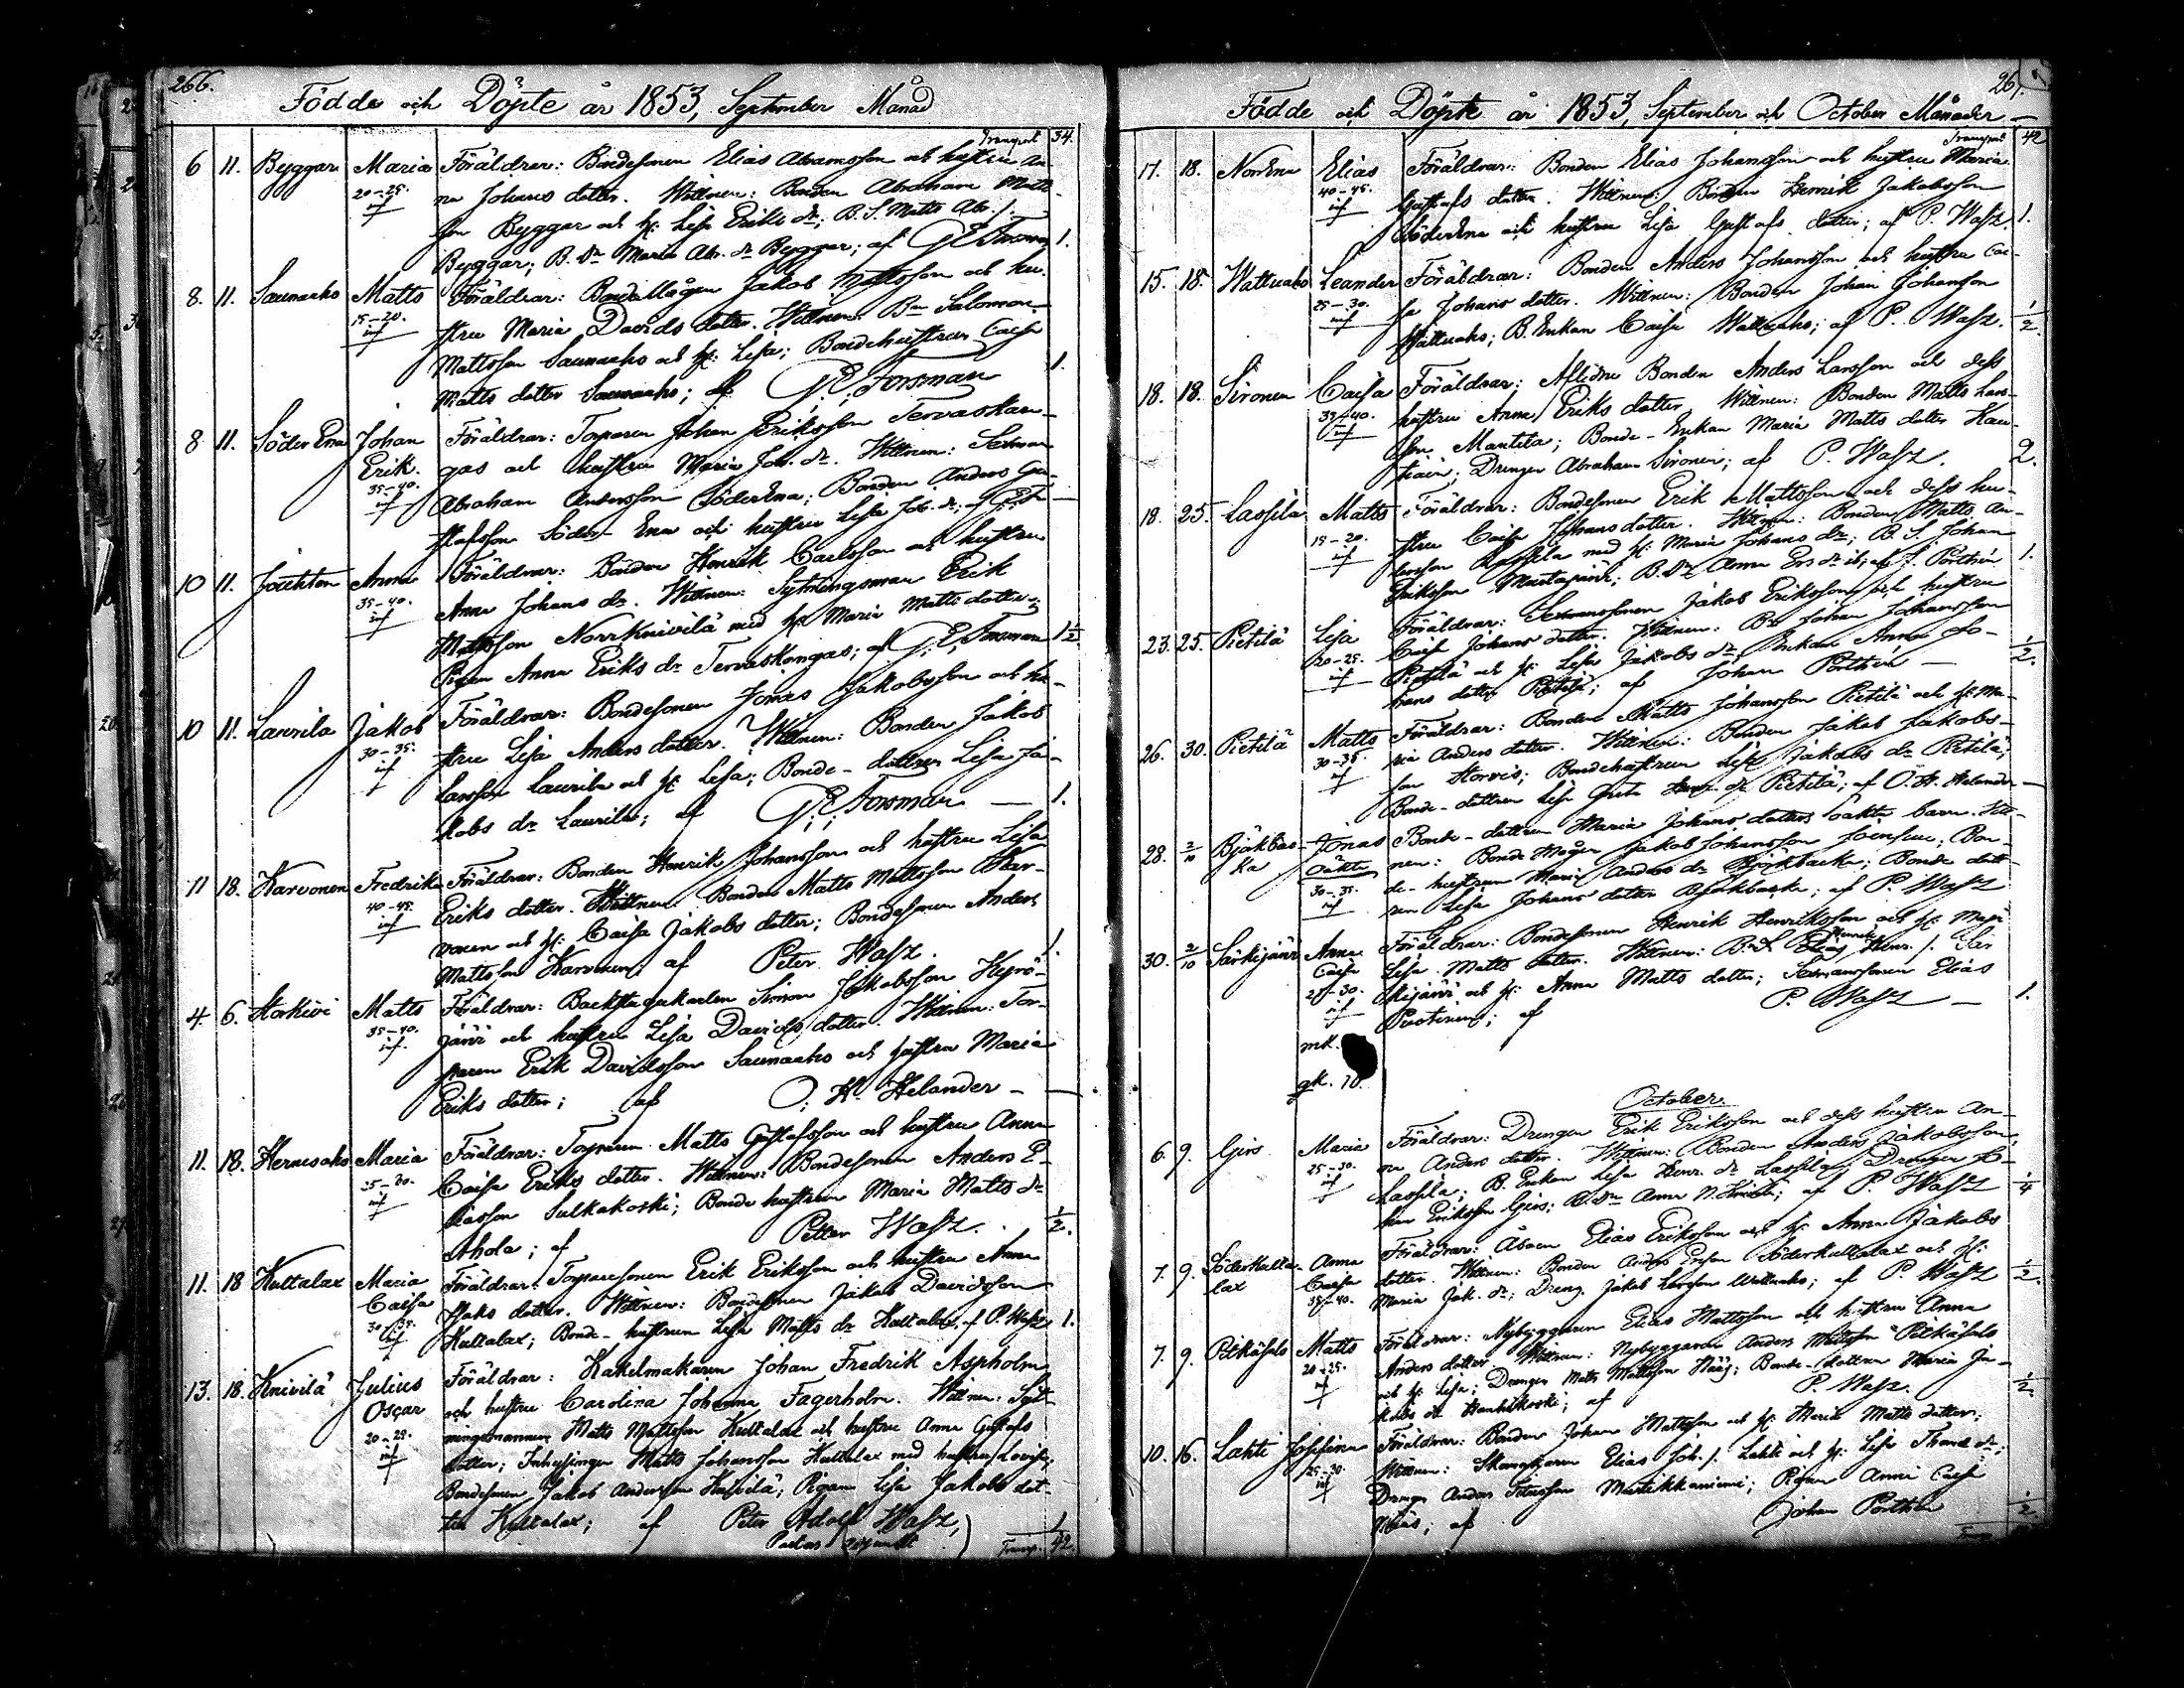 266.
Födde och Döpte år 1853, September Månad
Transport 34.
6 11. Byggar Maria Föräldrar: Bondesonen Elias Abramsson och hustru An-
20-25. na Johans dotter. Wittnen: Bonden Abraham Matts-
inf son Byggar och h: Lisa Eriks dr; B. S. Matts Abr. s.
Byggar; B. Dr Maria Abr. dr Byggar; af G. E. Forsman 1.
8. 11. Saunaaho Matts Föräldrar: Bondemågen Jakob Mattsson och hu-
15-20. stru Maria Davids dotter. Wittnen: Bn Salomon
inf Mattsson Saunaaho och h: Lisa; Bondehustrun Caisa
Matts dotter Saunaaho; af G. E. Forsman 1.
8 11. Söder Ena Johan Föräldrar: Torparen Johan Eriksson Tervaskan-
Erik. gas och hustru Maria Joh. dr. Wittnen: Sexman
35-40. Abraham Andersson SöderEna; Bonden Anders Gu-
inf stafsson Söder-Ena och hustru Lisa Joh. dr; af G. E. F. —
10 11. Anna Föräldrar: Bonden Henrik Carlsson och hustru
35-40. Anna Johans dr. Wittnen: Sytningsman Erik
inf Mattsson NorrKnivilä med h: Maria Matts dotter;
Pigan Anna Eriks dr Tervaskangas; af G. E. Forsman 1 1/2
10 11. Laurila Jakob Föräldrar: Bondesonen Jonas Jakobsson och hu-
30-35. stru Lisa Anders dotter. Wittnen: Bonden Jakob
inf Larsson Laurila och h: Lisa; Bonde-dottren Lisa Ja-
kobs dr Laurila; af G. E. Forsman — 1.
11 18. Karvonen Fredrika Föräldrar: Bonden Henrik Johansson och hustru Lisa
40-45. Eriks dotter. Wittnen: Bonden Matts Mattsson Kar-
inf vonen och h: Caisa Jakobs dotter; Bondesonen Anders
Mattsson Karvonen; af Peter Wasz. 1.
4. 6. Storkivi Matts Föräldrar: Backstugukarlen Simon Jakobsson Kyrö-
35-40. järvi och hustru Lisa Davids dotter. Wittnen: Tor-
inf. paren Erik Davidsson Saunaaho och hustru Maria
Eriks dotter; af O. H. Helander —
11. 18. Hernesaho Maria Föräldrar: Torparen Matts Gustafsson och hustru Anna
25-30. Caisa Eriks dotter. Wittnen: Bondesonen Anders E-
inf liasson Sulkakoski; Bonde hustrun Maria Matts dr
Ahola; af Petter Wasz. 1/2.
11. 18 Kultalax Maria Föräldrar: Torparesonen Erik Eriksson och hustru Anna
Caisa Isaks dotter. Wittnen: Bondesonen Jakob Davidsson
30-35. inf Kultalax; Bonde-hustrun Lisa Matts dr Kultalax, af P. Wasz 1.
13. 18. Knivilä Julius Föräldrar: Kakelmakaren Johan Fredrik Aspholm
Oscar och hustru Carolina Johanna Fagerholm. Wittnen: Syt-
20-25. ningsmannen Matts Mattsson Kultalax och hustru Anna Gustafs
inf dotter; Inhysingen Matts Johansson Kultalax med hustru Lovisa;
Bondesonen Jakob Andersson Knivilä; Pigan Lisa Jakobs dot-
ter Kultalax; af Peter Adolf Wasz, 1
Transp. 42.
267.
Födde och Döpte år 1853, September och October Månader —
Transport 42
17. 18. NorrEna Elias Föräldrar: Bonden Elias Johansson och hustru Maria
40-45. Gustafs dotter. Wittnen: Bonden Henrik Jakobsson
inf SöderEna och hustru Lisa Gustafs dotter; af P. Wasz. 1.
15. 18. Wattuaho Leander Föräldrar: Bonden Anders Johansson och hustru Cai-
25-30. sa Johans dotter. Wittnen: Bonden Johan Johansson
inf Wattuaho; B. Enkan Caisa Wattuaho; af P. Wasz. 1/2.
18. 18. Sironen Caisa Föräldrar; Aflidne Bonden Anders Larsson och dess
35-40. hustru Anna Eriks dotter Wittnen: Bonden Matts Lars-
inf son Mantila; Bonde-Enkan Maria Matts dotter
Drengen Abraham Sironen; af P. Wasz. 2.
18. 25. Lassila Matts Föräldrar: Bondesonen Erik Mattsson och dess hu-
15-20. stru Caisa Johans dotter. Wittnen: Bonden Matts An-
inf dersson Lassila med h: Maria Johans dr; B. S. Johan
Eriksson B. Dr Anna Ers dr ib; af J. Porthén 1.
23. 25. Pietilä Lisa Föräldrar: Sexmanssonen Jakob Eriksson och hustru
20-25. Caisa Johans dotter. Wittnen: Bn Johan Johansson
inf Pietilä och h: Lisa Jakobs dr; Enkan Anna Jo-
hans dotter Pietilä; af Johan Porthén — 1/2.
26. 30. Pietilä Matts Föräldrar: Bonden Matts Johansson Pietilä och h: Ma-
30-35. ria Anders dotter. Wittnen: Bonden Jakob Jakobs-
inf son Storvis; Bondehustrun Lisa Jakobs dr Pietilä;
Bonde-dottren Lisa Greta Henr. dr Pietilä; af O. H. Helander —
28. 2/10 Björkbac- Jonas Bonde-dottren Maria Johans dotters oäkta barn. Witt-
ka Oäkta nen: Bonde Mågen Jakob Johansson Bon-
30-35. de-hustrun Maria Anders dr Björkbacka; Bonde dott-
inf ren Lisa Johans dotter Björkbacka; af P. Wasz
30. 2/10 Särkijärvi Anna Föräldrar: Bondesonen Henrik Henriksson och h: Maja
Caisa Lisa Matts dotter. Wittnen: B. S. Henrik Henr. s. Sär
25-30. kijärvi och h: Anna Matts dotter; Sexmanssonen Elias
inf af P. Wasz — 1.
mk.
qk. 10.
October.
6. 9. Girs Maria Föräldrar: Drengen Erik Eriksson och dess hustru An-
25-30. na Anders dotter. Wittnen: Bonden Anders Jakobsson
inf Lassila; B. Enkan Lisa Henr. dr Lassila; Drengen Jo-
han Eriksson Girs; B. Dr Anna N. Knivilä; af P. Wasz 1/4
7. 9. Söderkulta- Anna Föräldrar: Åboen Elias Eriksson och h: Anna Jakobs
lax Caisa dotter. Wittnen: Bonden Anders Ersson Söderkultalax och h:
35-40. Maria Jak. dr; Dreng. Jakob Larsson Wattuaho; af P. Wasz 1/2.
7. 9. Pitkäsalo Matts Föräldrar: Nybyggaren Elias Mattsson och hustru Anna
20-25. Anders dotter. Wittnen: Nybyggaren Anders Mattsson Pitkäsalo
inf och h: Lisa; Drengen Matts Mattsson Bonde-dottren Maria Ja-
kobs dr af P. Wasz. 1/2.
10. 16. Lahti Josefina Föräldrar: Bonden Johan Mattsson och h: Maria Matts dotter;
25-30. Wittnen: Elias Joh. s. Lahti och h: Lisa Thom. dr;
inf Dreng Anders Mustikkaniemi; Pigan Anna Caisa
af Johan Porthén 1/2